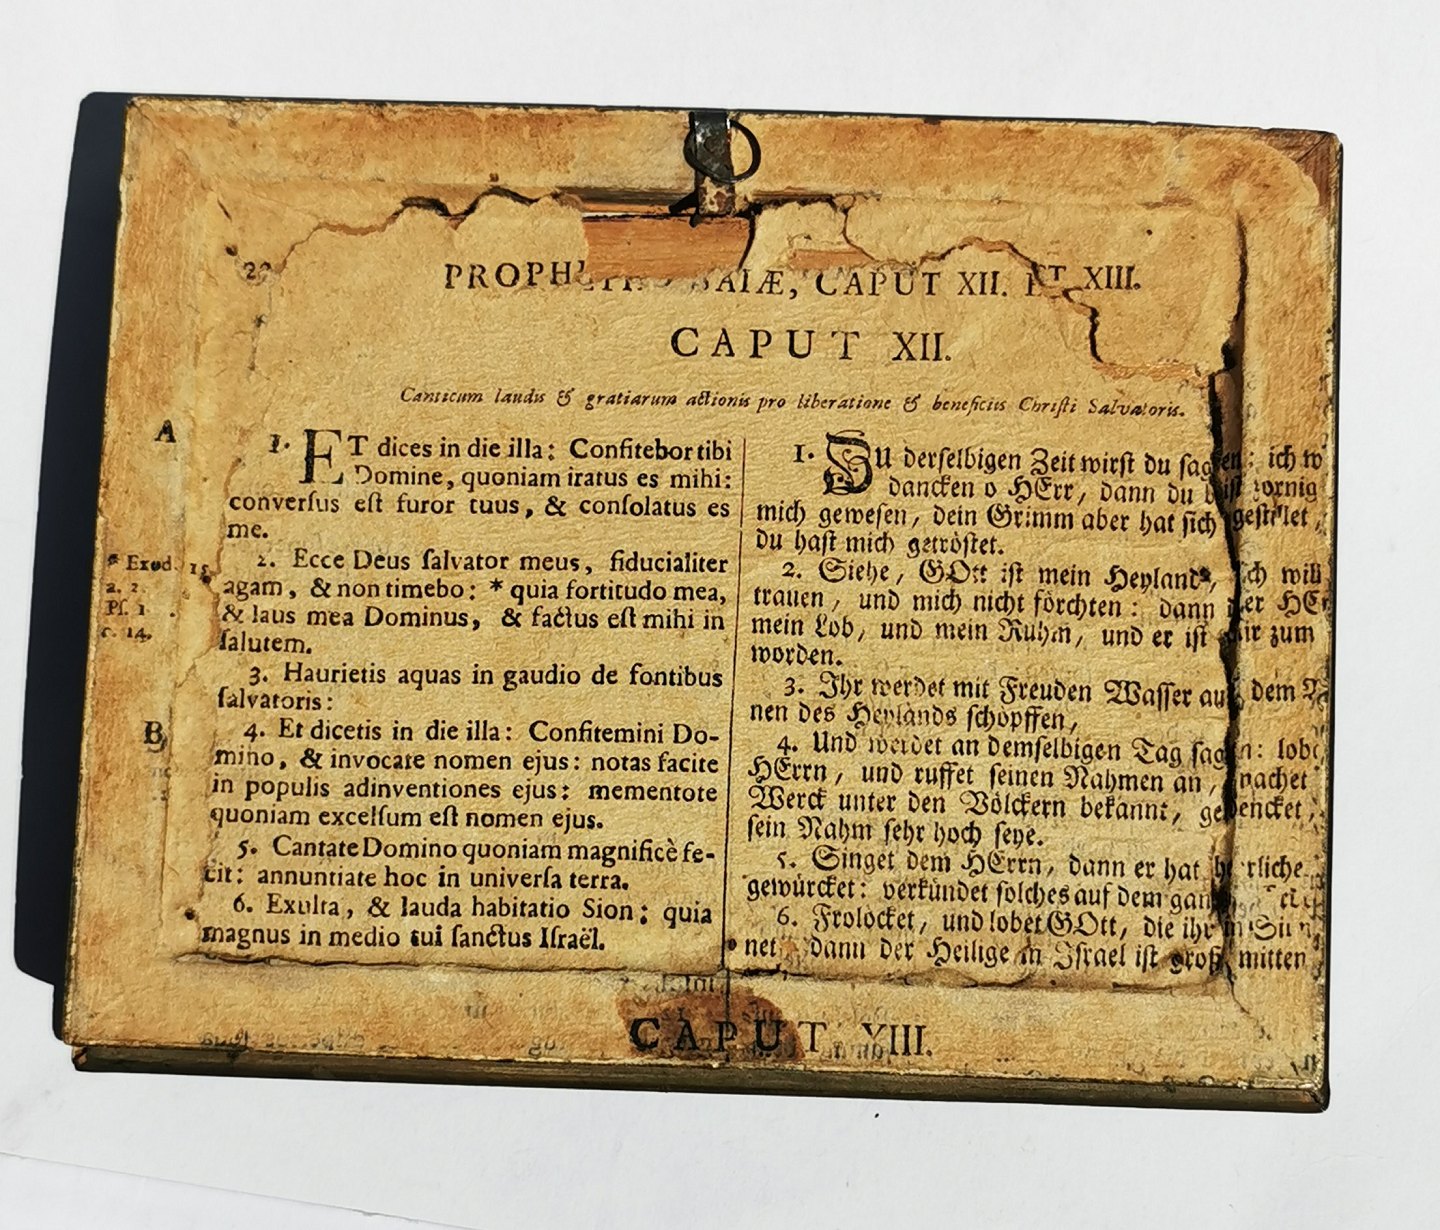 CAPUT XII. XIII.
CAPUT XII.
Canticum laudis & gratiarum actionis pro liberatione & beneficiis Chriſti Salvatoris.
A
1. ET dices in die illa: Confitebor tibi
Domine, quoniam iratus es mihi:
converſus eſt furor tuus, & conſolatus es
me.
* Exod. 15.
2. Ecce Deus ſalvator meus, fiducialiter
agam, & non timebo: * quia fortitudo mea,
& laus mea Dominus, & factus eſt mihi in
ſalutem.
3. Haurietis aquas in gaudio de fontibus
ſalvatoris:
B
4. Et dicetis in die illa: Confitemini Do-
mino, & invocate nomen ejus: notas facite
in populis adinventiones ejus: mementote
quoniam excelſum eſt nomen ejus.
5. Cantate Domino quoniam magnificè fe-
cit: annuntiate hoc in univerſa terra.
6. Exulta, & lauda habitatio Sion: quia
magnus in medio tui ſanctus Iſraël.
1. DU derſelbigen Zeit wirſt du ſagen: ich
dancken o HErr, dann du biſt zornig
mich geweſen, dein Grimm aber hat ſich geſtillet,
du haſt mich getröſtet.
2. Siehe, GOtt iſt mein Heyland, ich will
trauen, und mich nicht förchten: dann der
mein Lob, und mein Ruhm, und er iſt mir zum
worden.
3. Ihr werdet mit Freuden Waſſer auß dem
nen des Heylands ſchöpffen,
4. Und werdet an demſelbigen Tag ſagen:
HErrn, und ruffet ſeinen Nahmen an, machet
Werck unter den Völckern bekannt, gedencket,
ſein Nahm ſehr hoch ſeye.
5. Singet dem HErrn, dann er hat herrliche
gewürcket: verkündet ſolches auf dem
6. Frolocket, und lobet GOtt, die ihr in
net, dann der Heilige in Iſrael iſt groß mitten
CAPUT XIII.